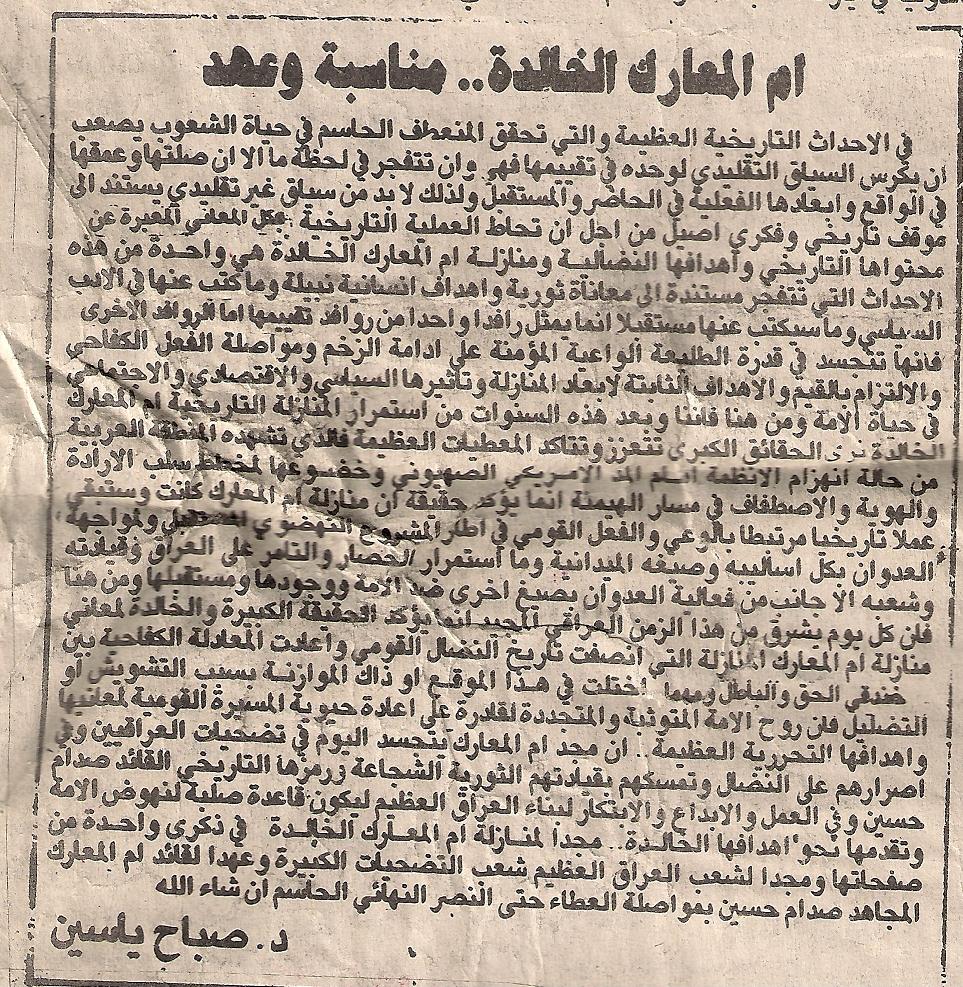 ام المعارك الخالدة.. مناسبة وعهد
في الاحداث التاريخية العظيمة والتي تحقق المنعطف الحاسم في حياة الشعوب يصعب
ان يكرس السياق التقليدي لوحده في تقييمها فهي وان تتفجر في لحظة ما الا ان صلتها وعمقها
في الواقع وابعادها الفعلية في الحاضر والمستقبل ولذلك لا بد من سياق غير تقليدي يستند الى
موقف تاريخي وفكري اصيل من اجل ان تحاط العملية التاريخية بكل المعاني المعبرة عن
محتواها التاريخي واهدافها النضالية ومنازلة ام المعارك الخالدة هي واحدة من هذه
الاحداث التي تتفجر مستندة الى معاناة ثورية واهداف انسانية نبيلة وما كتب عنها في الادب
السياسي وما سيكتب عنها مستقبلا انما يمثل رافدا واحدا من روافد تقييمها اما الروافد الاخرى
فانها تتجسد في قدرة الطليعة الواعية المؤمنة على ادامة الزخم ومواصلة الفعل الكفاحي
والالتزام بالقيم والاهداف الثابتة لابعاد المنازلة وتاثيرها السياسي والاقتصادي والاجتماعي
في حياة الامة ومن هنا فاننا وبعد هذه السنوات من استمرار المنازلة التاريخية ام المعارك
الخالدة نرى الحقائق الكبرى تتعزز وتتاكد المعطيات العظيمة فالذي تشهده المنطقة العربية
من حالة انهزام الانظمة امام المد الامريكي الصهيوني وخضوعها لمخطط سلب الارادة
والهوية والاصطفاف في مسار الهيمنة انما يؤكد حقيقة ان منازلة ام المعارك كانت وستبقى
عملا تاريخيا مرتبطا بالوعي والفعل القومي في اطار المشروع النهضوي المستقبلي ولمواجهة
العدوان بكل اساليبه وصيغه الميدانية وما استمرار الحصار والتامر على العراق وقيادته
وشعبه الا جانب من فعالية العدوان بصيغ اخرى ضد الامة ووجودها ومستقبلها ومن هنا
فان كل يوم يشرق من هذا الزمن العراقي المجيد انما يؤكد الحقيقة الكبيرة والخالدة لمعاني
منازلة ام المعارك المنازلة التي انصفت تاريخ النضال القومي واعادت المعادلة الكفاحية بين
خندقي الحق والباطل ومهما اختلت في هذا الموقع او ذاك الموازنة بسبب التشويش او
التضليل فان روح الامة المتوثبة والمتجددة لقادرة على اعادة حيوية المسيرة القومية لمعانيها
واهدافها التحررية العظيمة. ان مجد ام المعارك يتجسد اليوم في تضحيات العراقيين وفي
اصرارهم على النضال وتمسكهم بقيادتهم الثورية الشجاعة ورمزها التاريخي القائد صدام
حسين وفي العمل والابداع والابتكار لبناء العراق العظيم ليكون قاعدة صلبة لنهوض الامة
وتقدمها نحو اهدافها الخالدة.. مجدا لمنازلة ام المعارك الخالدة في ذكرى واحدة من
صفحاتها ومجدا لشعب العراق العظيم شعب التضحيات الكبيرة وعهدا لقائد ام المعارك
المجاهد صدام حسين بمواصلة العطاء حتى النصر النهائي الحاسم ان شاء الله
د. صباح ياسين